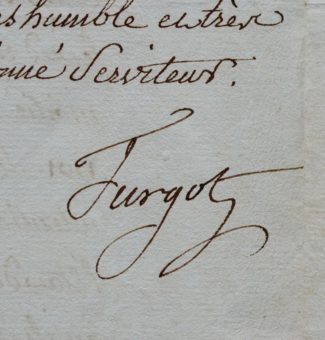 s humble et très
onné Serviteur.
Turgot